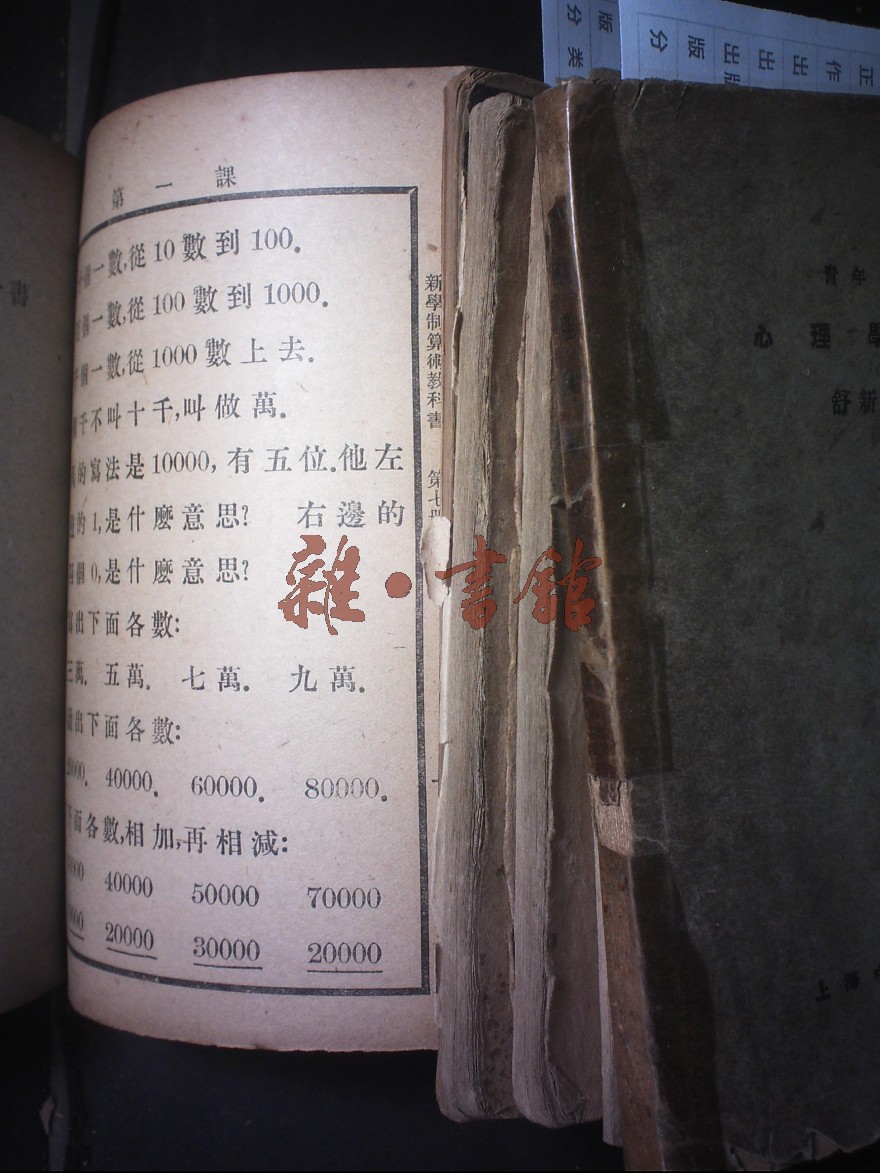 第一課
個一數,從10數到100.
個一數,從100數到1000.
千個一數,從1000數上去.
千不叫十千,叫做萬.
的寫法是10000,有五位.他左
的1,是什麽意思? 右邊的
四個0,是什麽意思?
出下面各數:
三萬. 五萬. 七萬. 九萬.
出下面各數:
40000. 60000. 80000.
下面各數,相加,再相減:
40000 50000 70000
20000 30000 20000
新學制算術教科書 第七册
一
雜·書館
版分
类
正作出出版分
版
書
心理學
舒新
上海